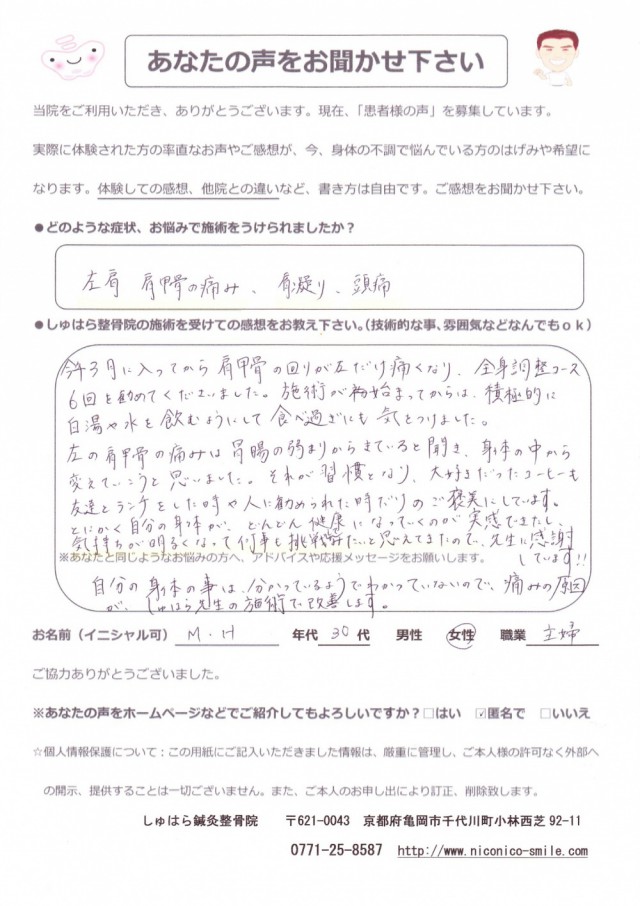 あなたの声をお聞かせ下さい
当院をご利用いただき、ありがとうございます。現在、「患者様の声」を募集しています。
実際に体験された方の率直なお声やご感想が、今、身体の不調で悩んでいる方のはげみや希望に
なります。体験しての感想、他院との違いなど、書き方は自由です。ご感想をお聞かせ下さい。
●どのような症状、お悩みで施術をうけられましたか？
左肩 肩甲骨の痛み、肩凝り、頭痛
●しゅはら整骨院の施術を受けての感想をお教え下さい。（技術的な事、雰囲気などなんでもｏｋ）
今年3月に入ってから肩甲骨の回りが左だけ痛くなり、全身調整コース
6回を勧めてくださいました。施術が始まってからは、積極的に
白湯や水を飲むようにして食べ過ぎにも気をつけました。
左の肩甲骨の痛みは胃腸の弱まりからきていると聞き、身体の中から
変えていこうと思いました。それが習慣となり、大好きだったコーヒーも
友達とランチをした時や人に勧められた時だけのご褒美にしています。
とにかく自分の身体が、どんどん健康になっていくのが実感できたし、
気持ちが明るくなって何事も挑戦してみたいと思えてきたので、先生に感謝
しています!!
※あなたと同じようなお悩みの方へ、アドバイスや応援メッセージをお願いします。
自分の身体の事は、分かっているようでわかっていないので、痛みの原因
が、しゅはら先生の施術で改善します。
お名前（イニシャル可） M.H 年代 30 代 男性 女性 職業 主婦
ご協力ありがとうございました。
※あなたの声をホームページなどでご紹介してもよろしいですか？□はい ☑匿名で □いいえ
☆個人情報保護について：この用紙にご記入いただきました情報は、厳重に管理し、ご本人様の許可なく外部へ
の開示、提供することは一切ございません。また、ご本人のお申し出により訂正、削除致します。
しゅはら鍼灸整骨院 〒621-0043 京都府亀岡市千代川町小林西芝 92-11
0771-25-8587 http://www.niconico-smile.com